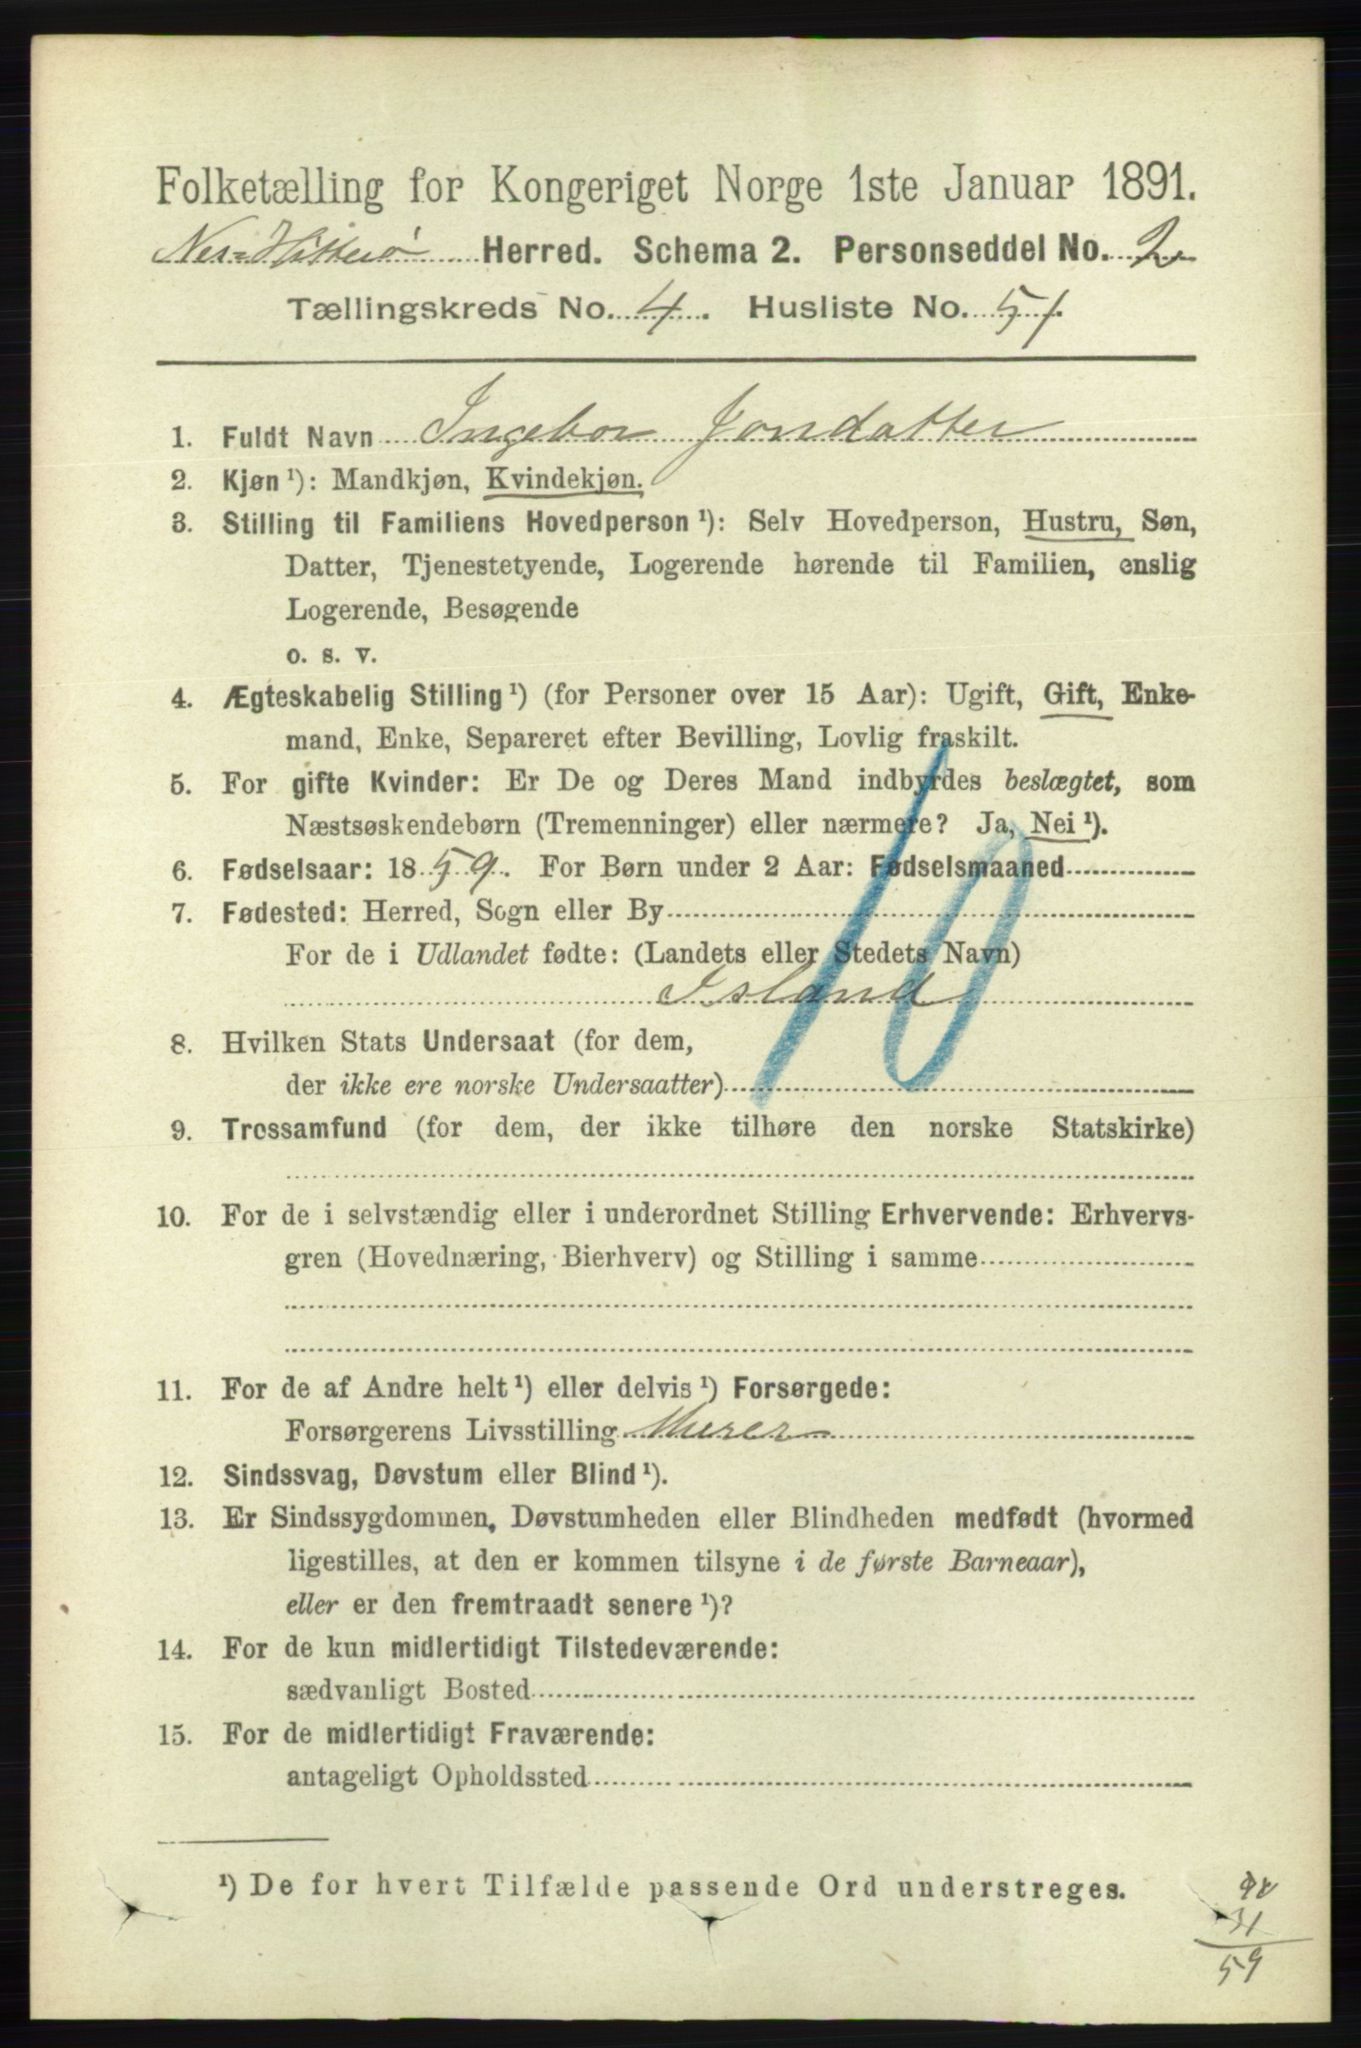 Folketælling for Kongeriget Norge 1ste Januar 1891.
Nes-Hitterø Herred. Schema 2. Personseddel No. 2
Tællingskreds No. 4. Husliste No. 51.
1. Fuldt Navn Ingebor Jondatter
2. Kjøn ¹): Mandkjøn, Kvindekjøn.
3. Stilling til Familiens Hovedperson ¹): Selv Hovedperson, Hustru, Søn,
Datter, Tjenestetyende, Logerende hørende til Familien, enslig
Logerende, Besøgende
o. s. v.
4. Ægteskabelig Stilling ¹) (for Personer over 15 Aar): Ugift, Gift, Enke-
mand, Enke, Separeret efter Bevilling, Lovlig fraskilt.
5. For gifte Kvinder: Er De og Deres Mand indbyrdes beslægtet, som
Næstsøskendebørn (Tremenninger) eller nærmere? Ja, Nei ¹).
6. Fødselsaar: 1859. For Børn under 2 Aar: Fødselsmaaned
7. Fødested: Herred, Sogn eller By
For de i Udlandet fødte: (Landets eller Stedets Navn)
Island
10
8. Hvilken Stats Undersaat (for dem,
der ikke ere norske Undersaatter)
9. Trossamfund (for dem, der ikke tilhøre den norske Statskirke)
10. For de i selvstændig eller i underordnet Stilling Erhvervende: Erhvervs-
gren (Hovednæring, Bierhverv) og Stilling i samme
11. For de af Andre helt ¹) eller delvis ¹) Forsørgede:
Forsørgerens Livsstilling Murer
12. Sindssvag, Døvstum eller Blind ¹).
13. Er Sindssygdommen, Døvstumheden eller Blindheden medfødt (hvormed
ligestilles, at den er kommen tilsyne i de første Barneaar),
eller er den fremtraadt senere ¹)?
14. For de kun midlertidigt Tilstedeværende:
sædvanligt Bosted
15. For de midlertidigt Fraværende:
antageligt Opholdssted
¹) De for hvert Tilfælde passende Ord understreges.
90
31
59